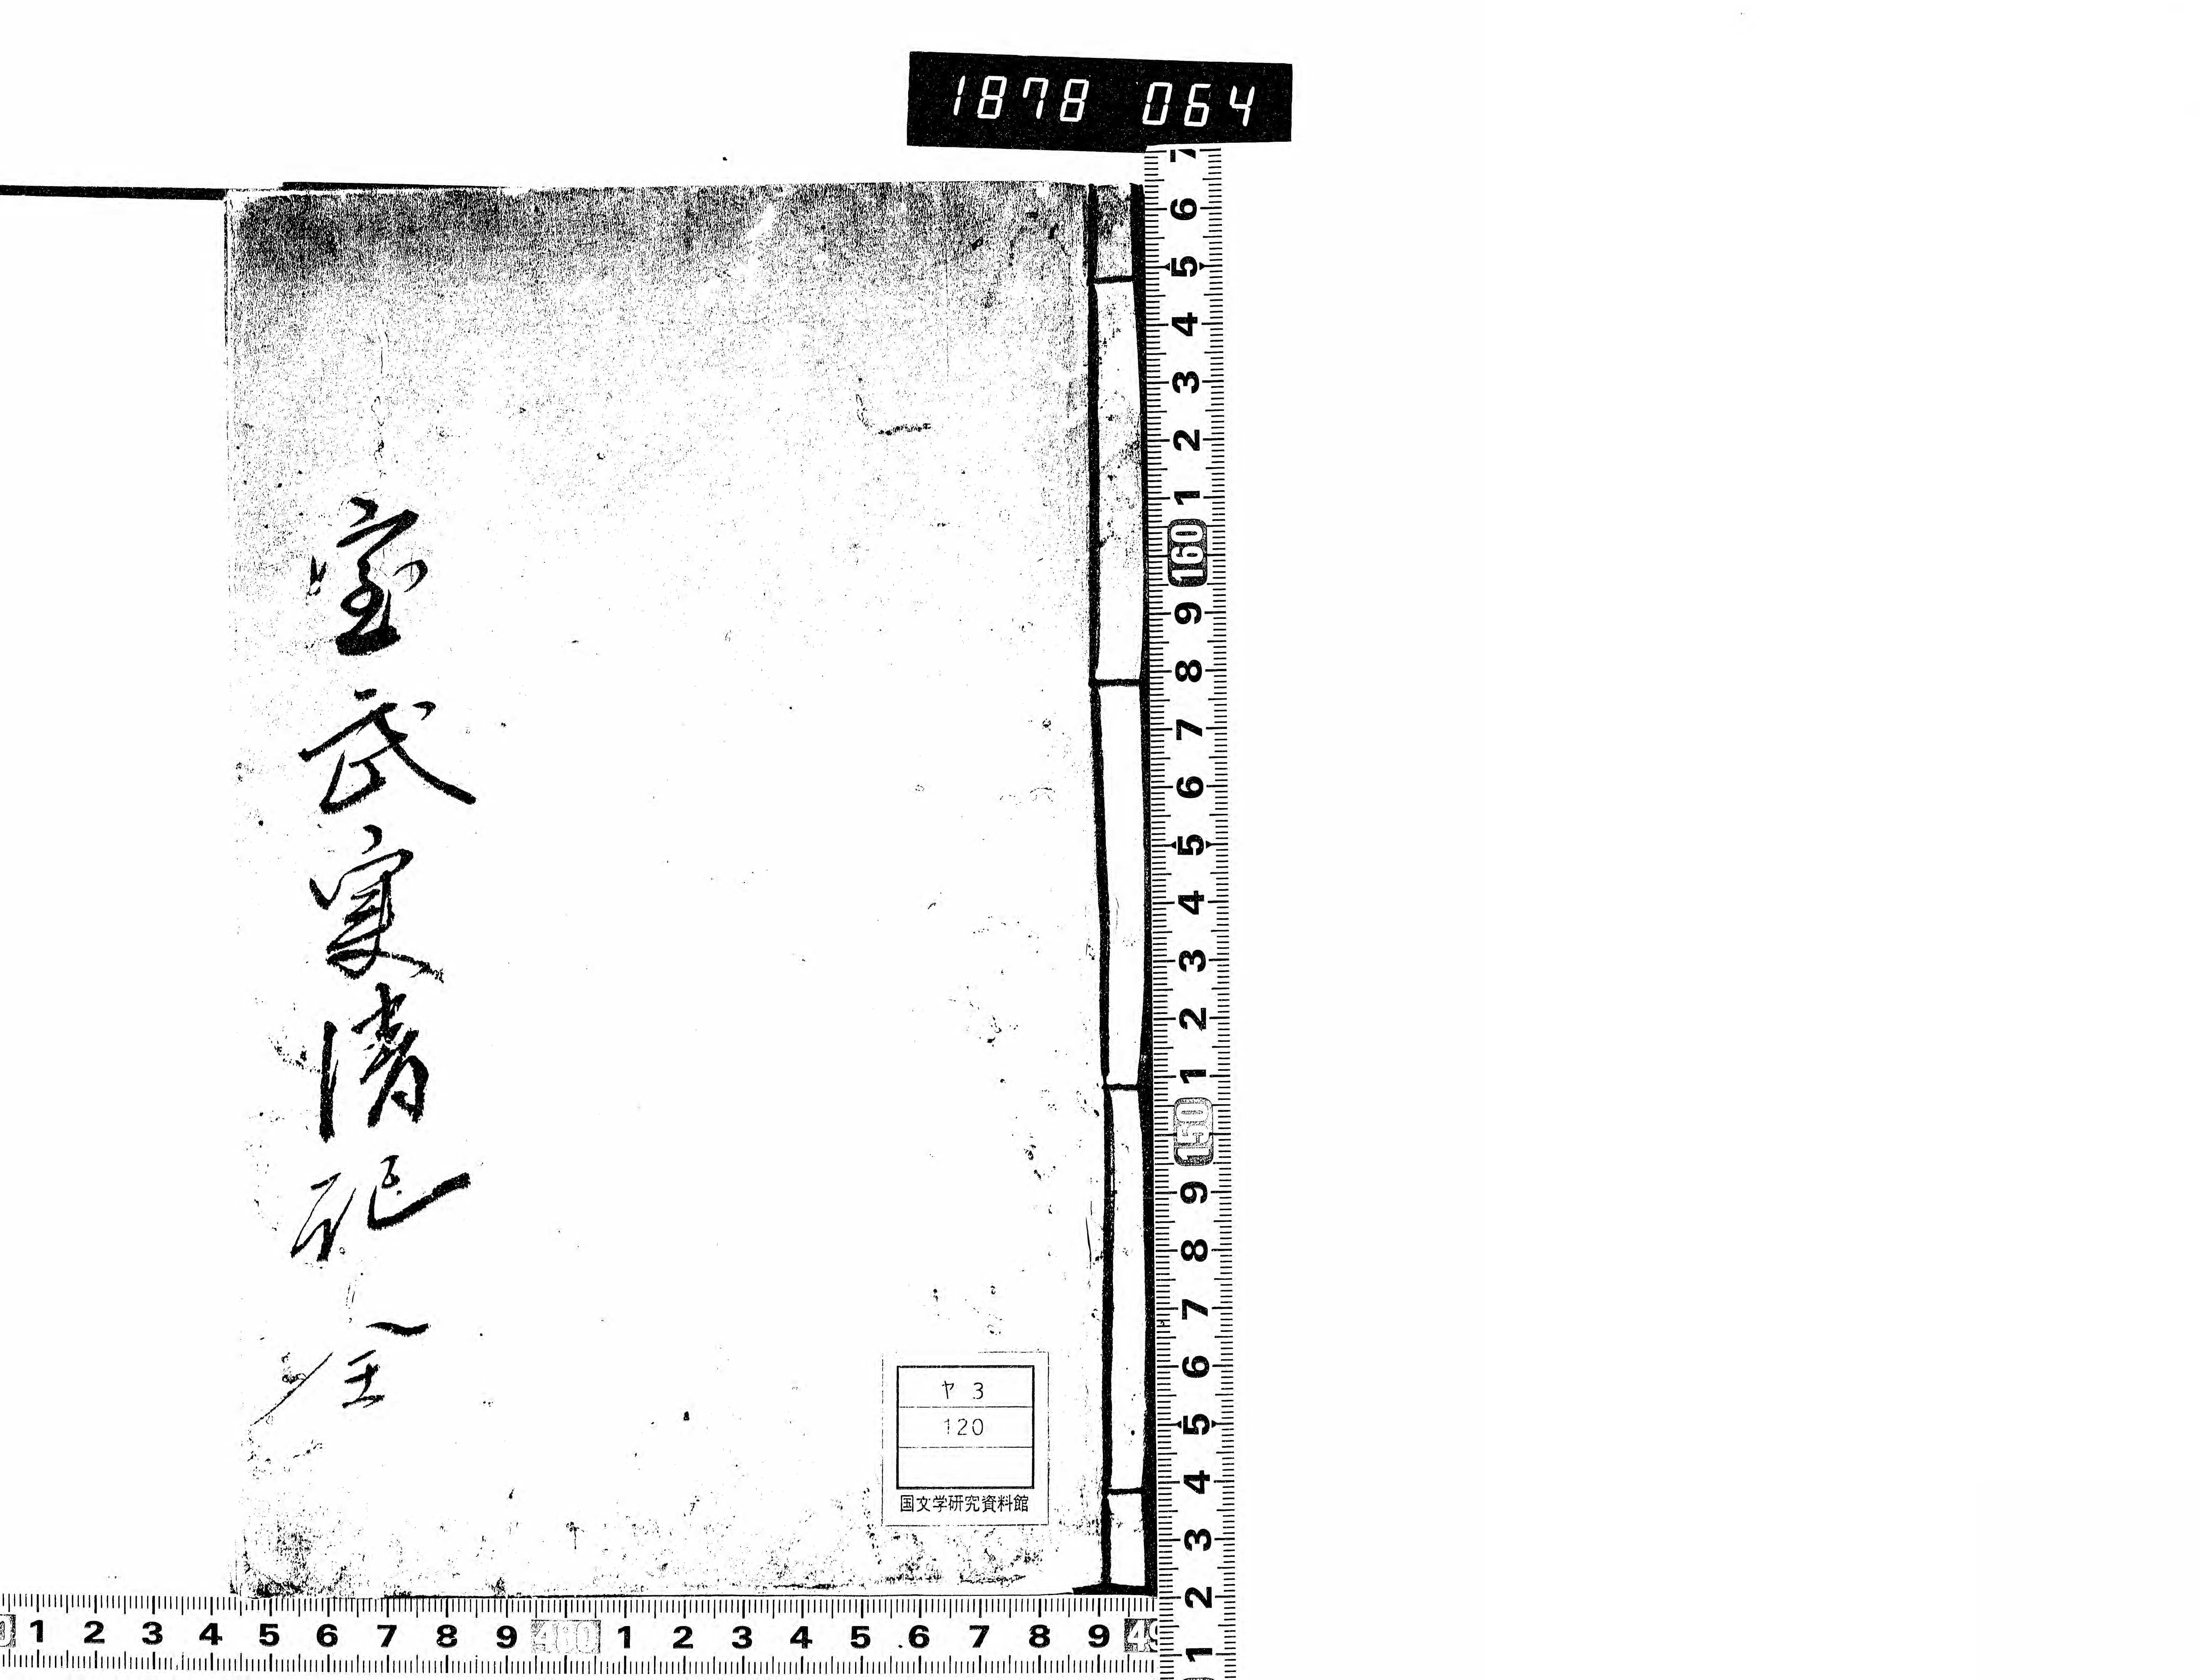 1878 064
室武実情記 全
ヤ 3
120
国文学研究資料館
7 6 5 4 3 2 1 160 9 8 7 6 5 4 3 2 1 150 9 8 7 6 5 4 3 2 1
1 2 3 4 5 6 7 8 9 480 1 2 3 4 5 6 7 8 9